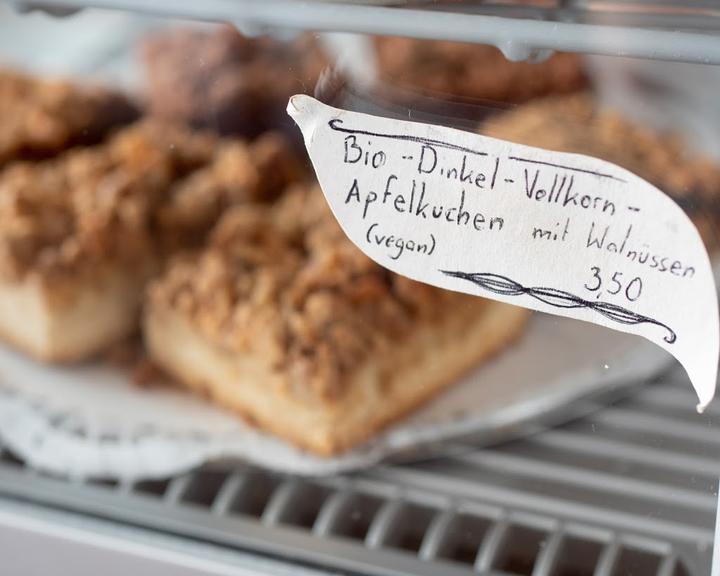 Bio - Dinkel - Vollkorn -
Apfelkuchen mit Walnüssen
(vegan) 3,50